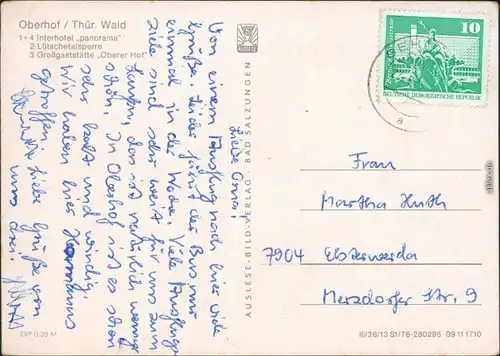 Oberhof / Thür. Wald
1+4 Interhotel „panorama"
2 Lütschetalsperre
3 Großgaststätte „Oberer Hof"
Liebe Oma!
Von einem Ausflug nach hier viele
Grüße. Leider fährt der Bus nur
einmal in der Woche. Viele Ausflugs-
ziele sind sehr weit für uns zum
Laufen, das ist natürlich weniger
schön. In Oberhof ist es schon
sehr kalt und windig.
Wir haben hier
getroffen.
liebe Grüße von
uns drei.
EVP 0,20 M
AUSLESE-BILD-VERLAG · BAD SALZUNGEN
10
DEUTSCHE DEMOKRATISCHE REPUBLIK
a
Frau
Martha Huth
7904 Elsterwerda
Merzdorfer Str. 9
III/26/13 S1/76-280295 09 11 1710